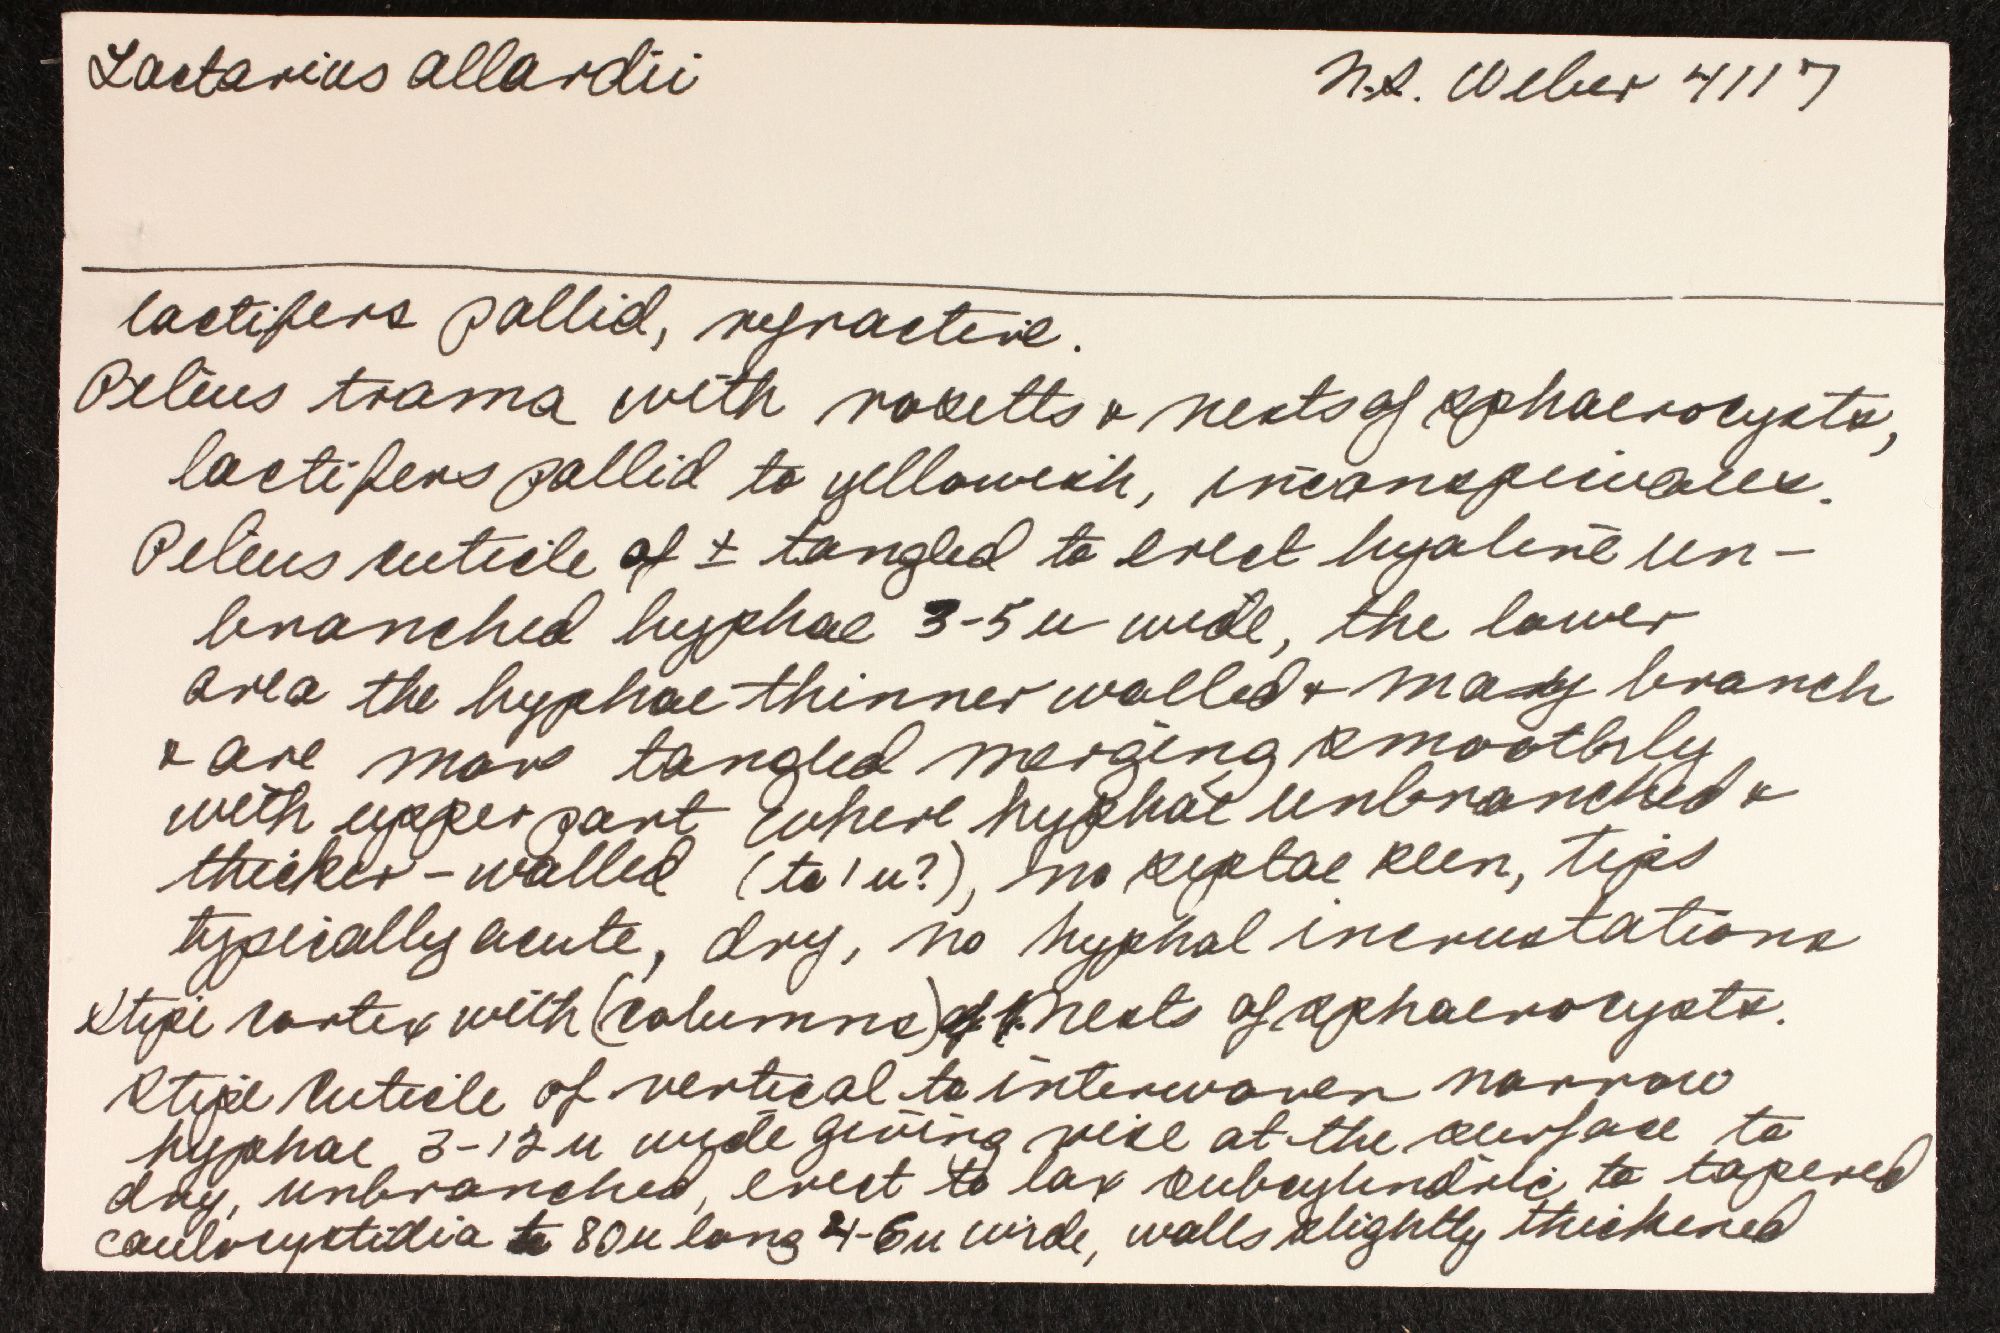 Lactarius allardii N.S. Weber 4117
lactifers pallid, refractive.
Pileus trama with rosetts & nests of sphaerocysts,
lactifers pallid to yellowish, inconspicuous.
Pileus cuticle of ± tangled to erect hyaline un-
branched hyphae 3-5 u wide, the lower
area the hyphae thinner walled & many branch
& are more tangled merging smoothly
with upper part where hyphae unbranched &
thicker-walled (to 1 u?), no septae seen, tips
typically acute, dry, no hyphal incrustations
Stipe cortex with (columns) of nests of sphaerocysts.
Stipe cuticle of vertical to interwoven narrow
hyphae 3-12 u wide giving rise at the surface to
dry, unbranched, erect to lax subcylindric to tapered
caulocystidia to 80 u long 4-6 u wide, walls slightly thickened